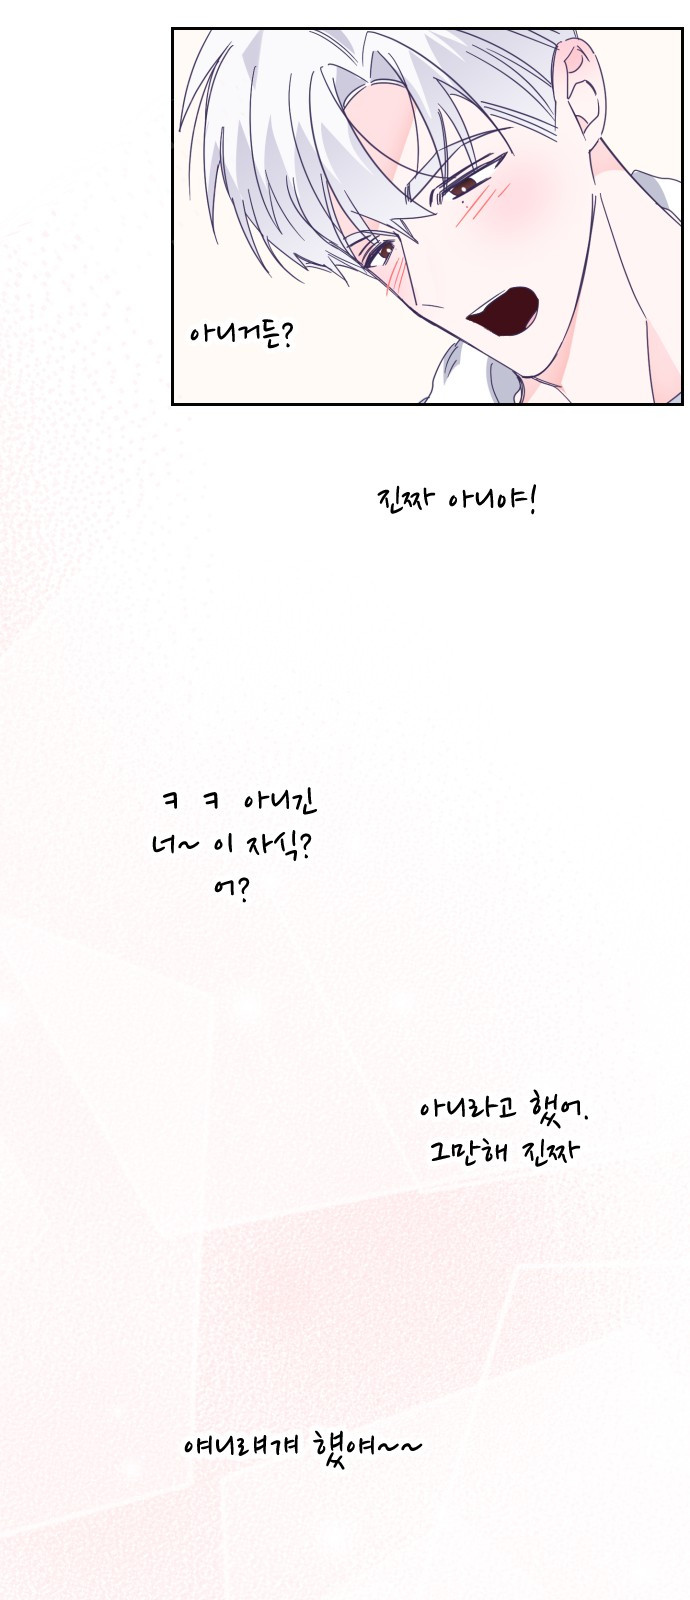 아니거든?
진짜 아니야!
ㅋ ㅋ 아니긴
너~ 이 자식?
어?
아니라고 했어.
그만해 진짜
얘니럐걔 헀얘~~